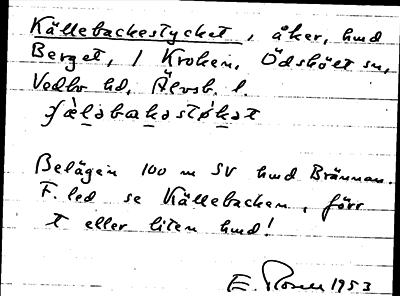 Källebackestycket, åker, hmd
Berget, 1 Kroken, Ödskölt sn,
Vedbo hd, Älvsb. l.
Belägen 100 m SV hmd Brännan.
F. led se Källebacken, förr
t eller liten hmd!
E. Rosell 1953